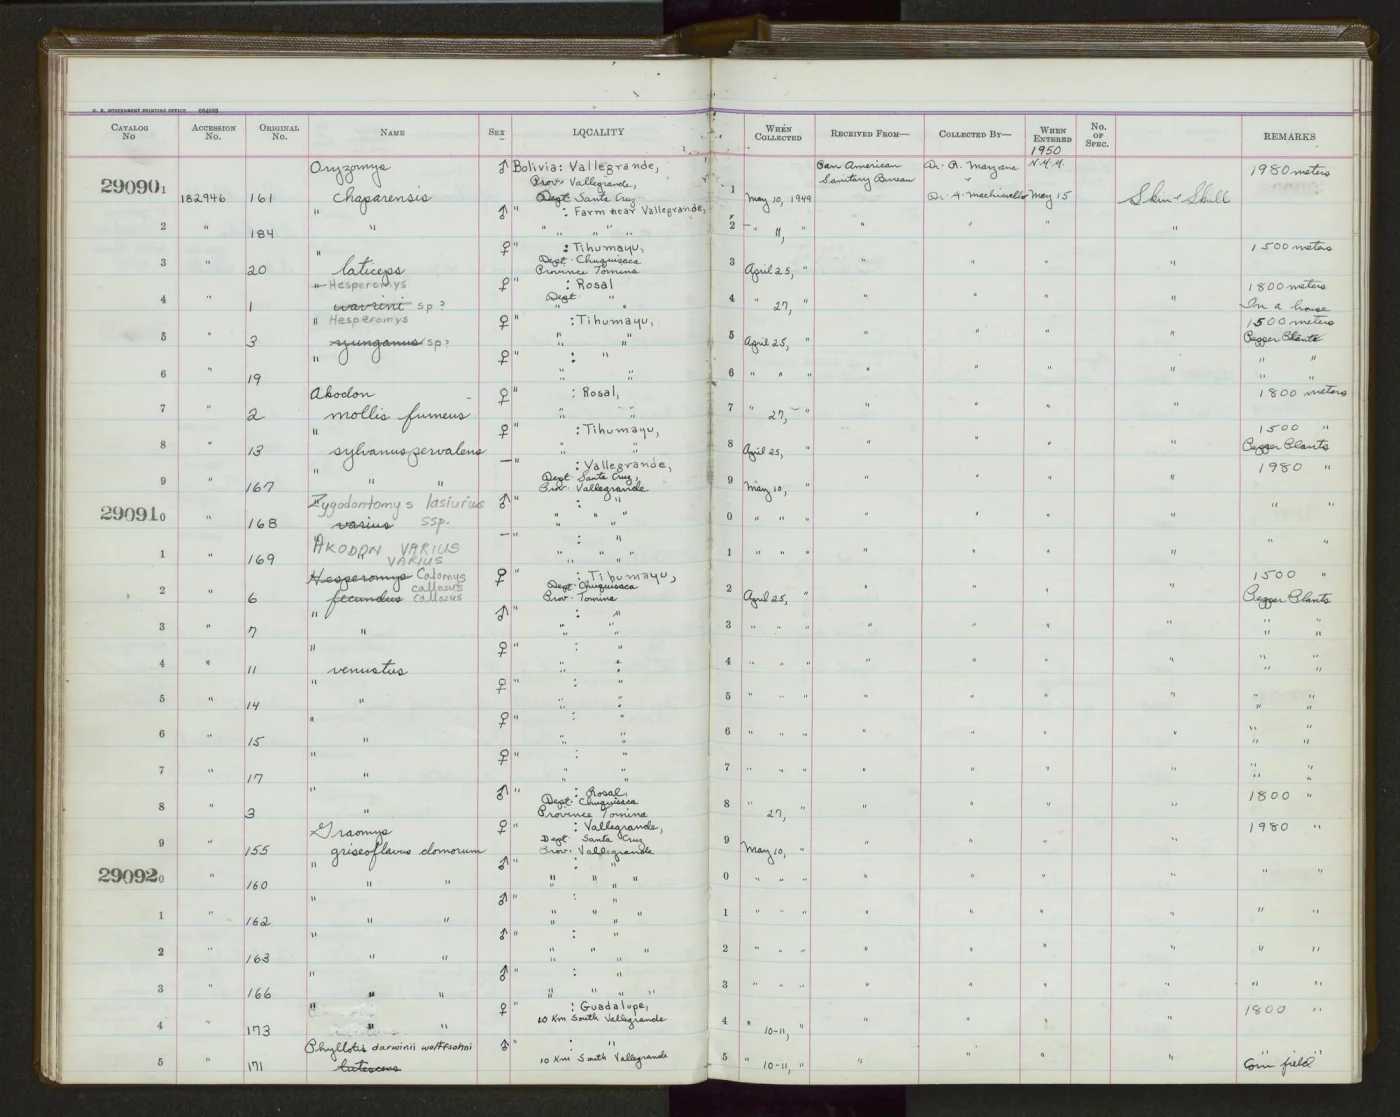 U. S. GOVERNMENT PRINTING OFFICE
CATALOG No ACCESSION No. ORIGINAL No. NAME SEX LOCALITY WHEN COLLECTED RECEIVED FROM— COLLECTED BY— WHEN ENTERED No. OF SPEC. REMARKS
1950
Oryzomys ♂ Bolivia: Vallegrande, Pan American Dr. R. Marzana 1980 meters
29090₁ Prov. Vallegrande, 1 Sanitary Bureau
182946 161 chaparensis Dept Santa Cruz May 10, 1949 Dr. A. Machiavello May 15 Skin + Skull
" ♂ " : Farm near Vallegrande,
2 " 184 " " " " " 2 " 11, " " " " "
" ♀ " : Tihumayu, 1500 meters
3 " 20 laticeps Dept. Chuquisaca Province Tomina 3 April 25, " " " " "
" Hesperomys ♀ " : Rosal 1800 meters
4 " 1 wavrini sp? Dept " 4 " 27, " " " " In a house
" Hesperomys ♀ " : Tihumayu, 1500 meters
5 " 3 yunganus sp? " " 5 April 25, " " " " " Pepper Plants
" ♀ " : " " "
6 " 19 " " 6 " " " " " " " " "
Akodon ♀ " : Rosal, 1800 meters
7 " 2 mollis fumeus " " 7 " 27, " " " " "
" ♀ " : Tihumayu, 1500 "
8 " 13 sylvanus pervalens " " 8 April 25, " " " " " Pepper Plants
" — " : Vallegrande, 1980 "
9 " 167 " " Dept. Santa Cruz, Prov. Vallegrande 9 May 10, " " " " "
Zygodontomys lasiurus ♂ " : " " "
29091₀ " 168 varius ssp. " " " 0 " " " " " " "
AKODON VARIUS — " : " " "
1 " 169 " VARIUS " " " 1 " " " " " " "
Hesperomys Calomys ♀ " : Tihumayu, 1500 "
2 " 6 fecundus callosus callosus Dept. Chuquisaca Prov. Tomina 2 April 25, " " " " " Pepper Plants
" ♂ " : " " "
3 " 7 " " " 3 " " " " " " " " "
" ♀ " : " " "
4 " 11 venustus " " 4 " " " " " " " " "
" ♀ " : " " "
5 " 14 " " " 5 " " " " " " " " "
" ♀ " : " " "
6 " 15 " " " 6 " " " " " " " " "
" ♀ " : " " "
7 " 17 " " " 7 " " " " " " " " "
" ♂ " : Rosal, 1800 "
8 " 3 " Dept. Chuquisaca Province Tomina 8 " 27, " " " " "
Graomys ♀ " : Vallegrande, 1980 "
9 " 155 griseoflavus domorum Dept Santa Cruz Prov. Vallegrande 9 May 10, " " " " "
" ♂ " : "
29092₀ " 160 " " " " " 0 " " " " " " " " "
" ♂ " : "
1 " 162 " " " " " 1 " " " " " " " " "
" ♂ " : "
2 " 163 " " " " " 2 " " " " " " " " "
" ♂ " : "
3 " 166 " " " " " 3 " " " " " " " " "
" ♀ " : Guadalupe, 1800 "
4 " 173 " " 10 Km South Vallegrande 4 " 10-11, " " " " "
Phyllotis darwinii wolffsohni ♂ " : " " "
5 171 lutescens 10 Km South Vallegrande 5 " 10-11, " " " " " Corn field